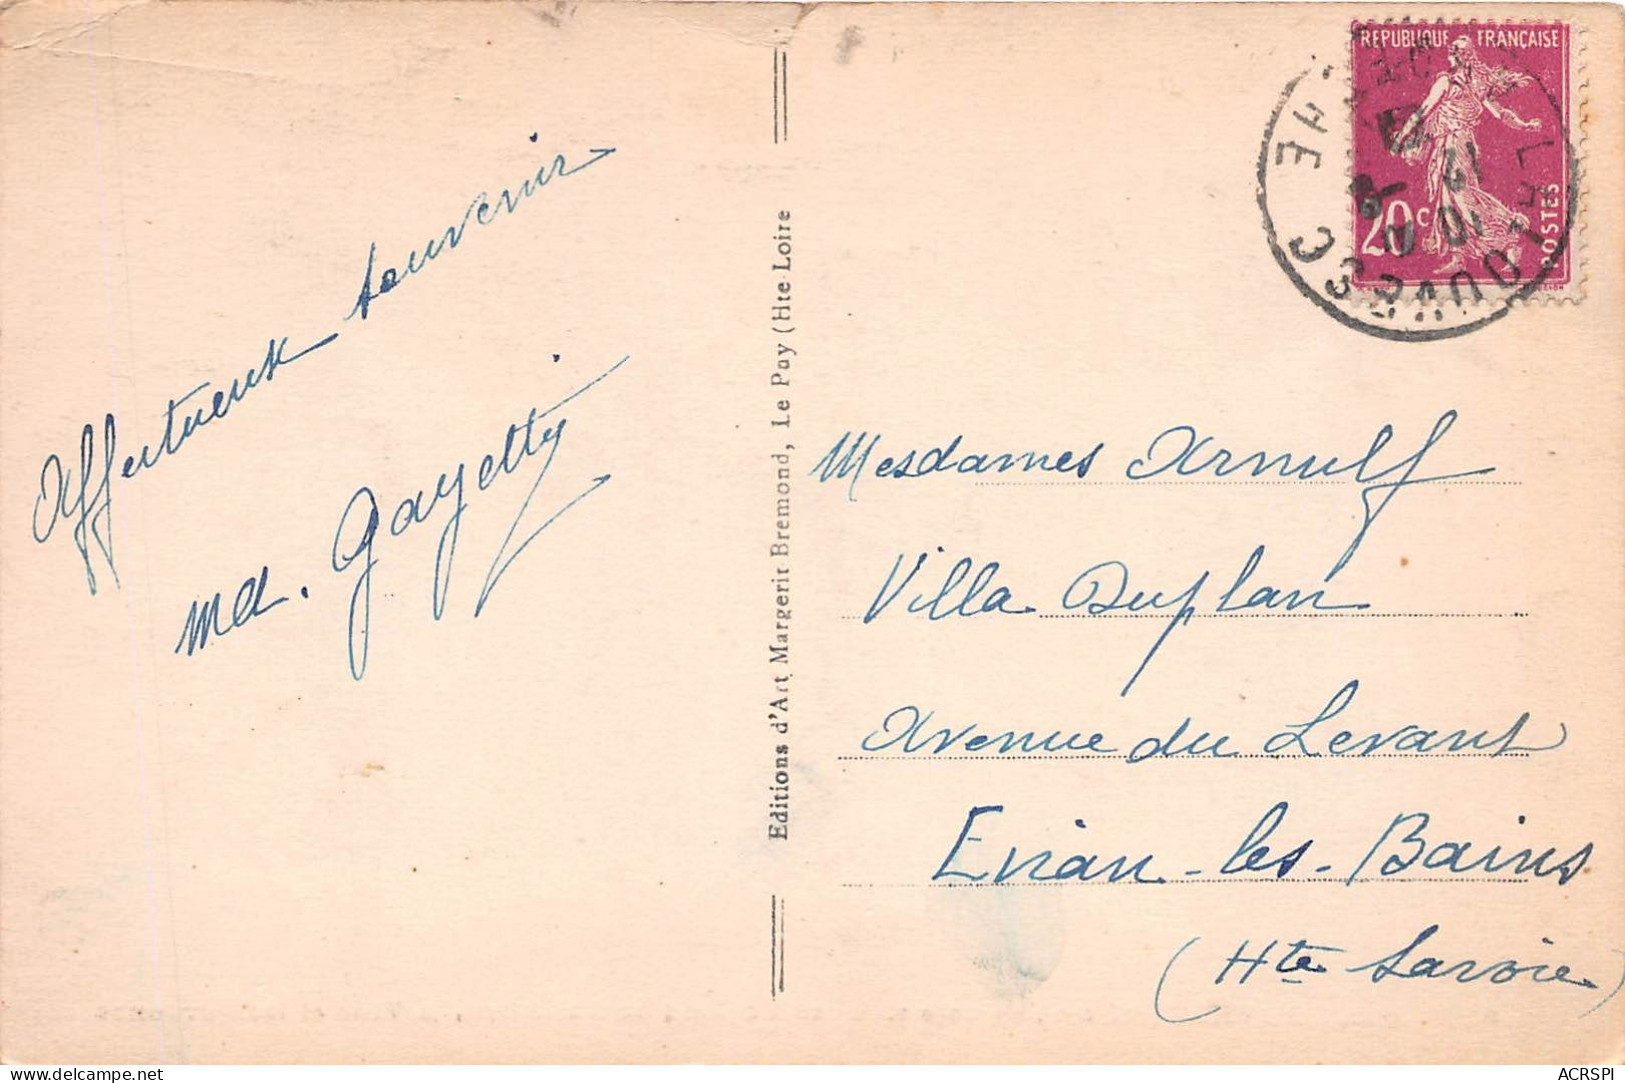 Affectueux souvenir
Md. Gayetty
Editions d'Art Margerit Bremond, Le Puy (Hte-Loire
REPUBLIQUE FRANÇAISE
20c
POSTES
LOUVESC
Mesdames Arnulf
Villa Duplan
Avenue du Levant
Evian-les-Bains
(Hte Savoie)
delcampe.net
ACRSPI